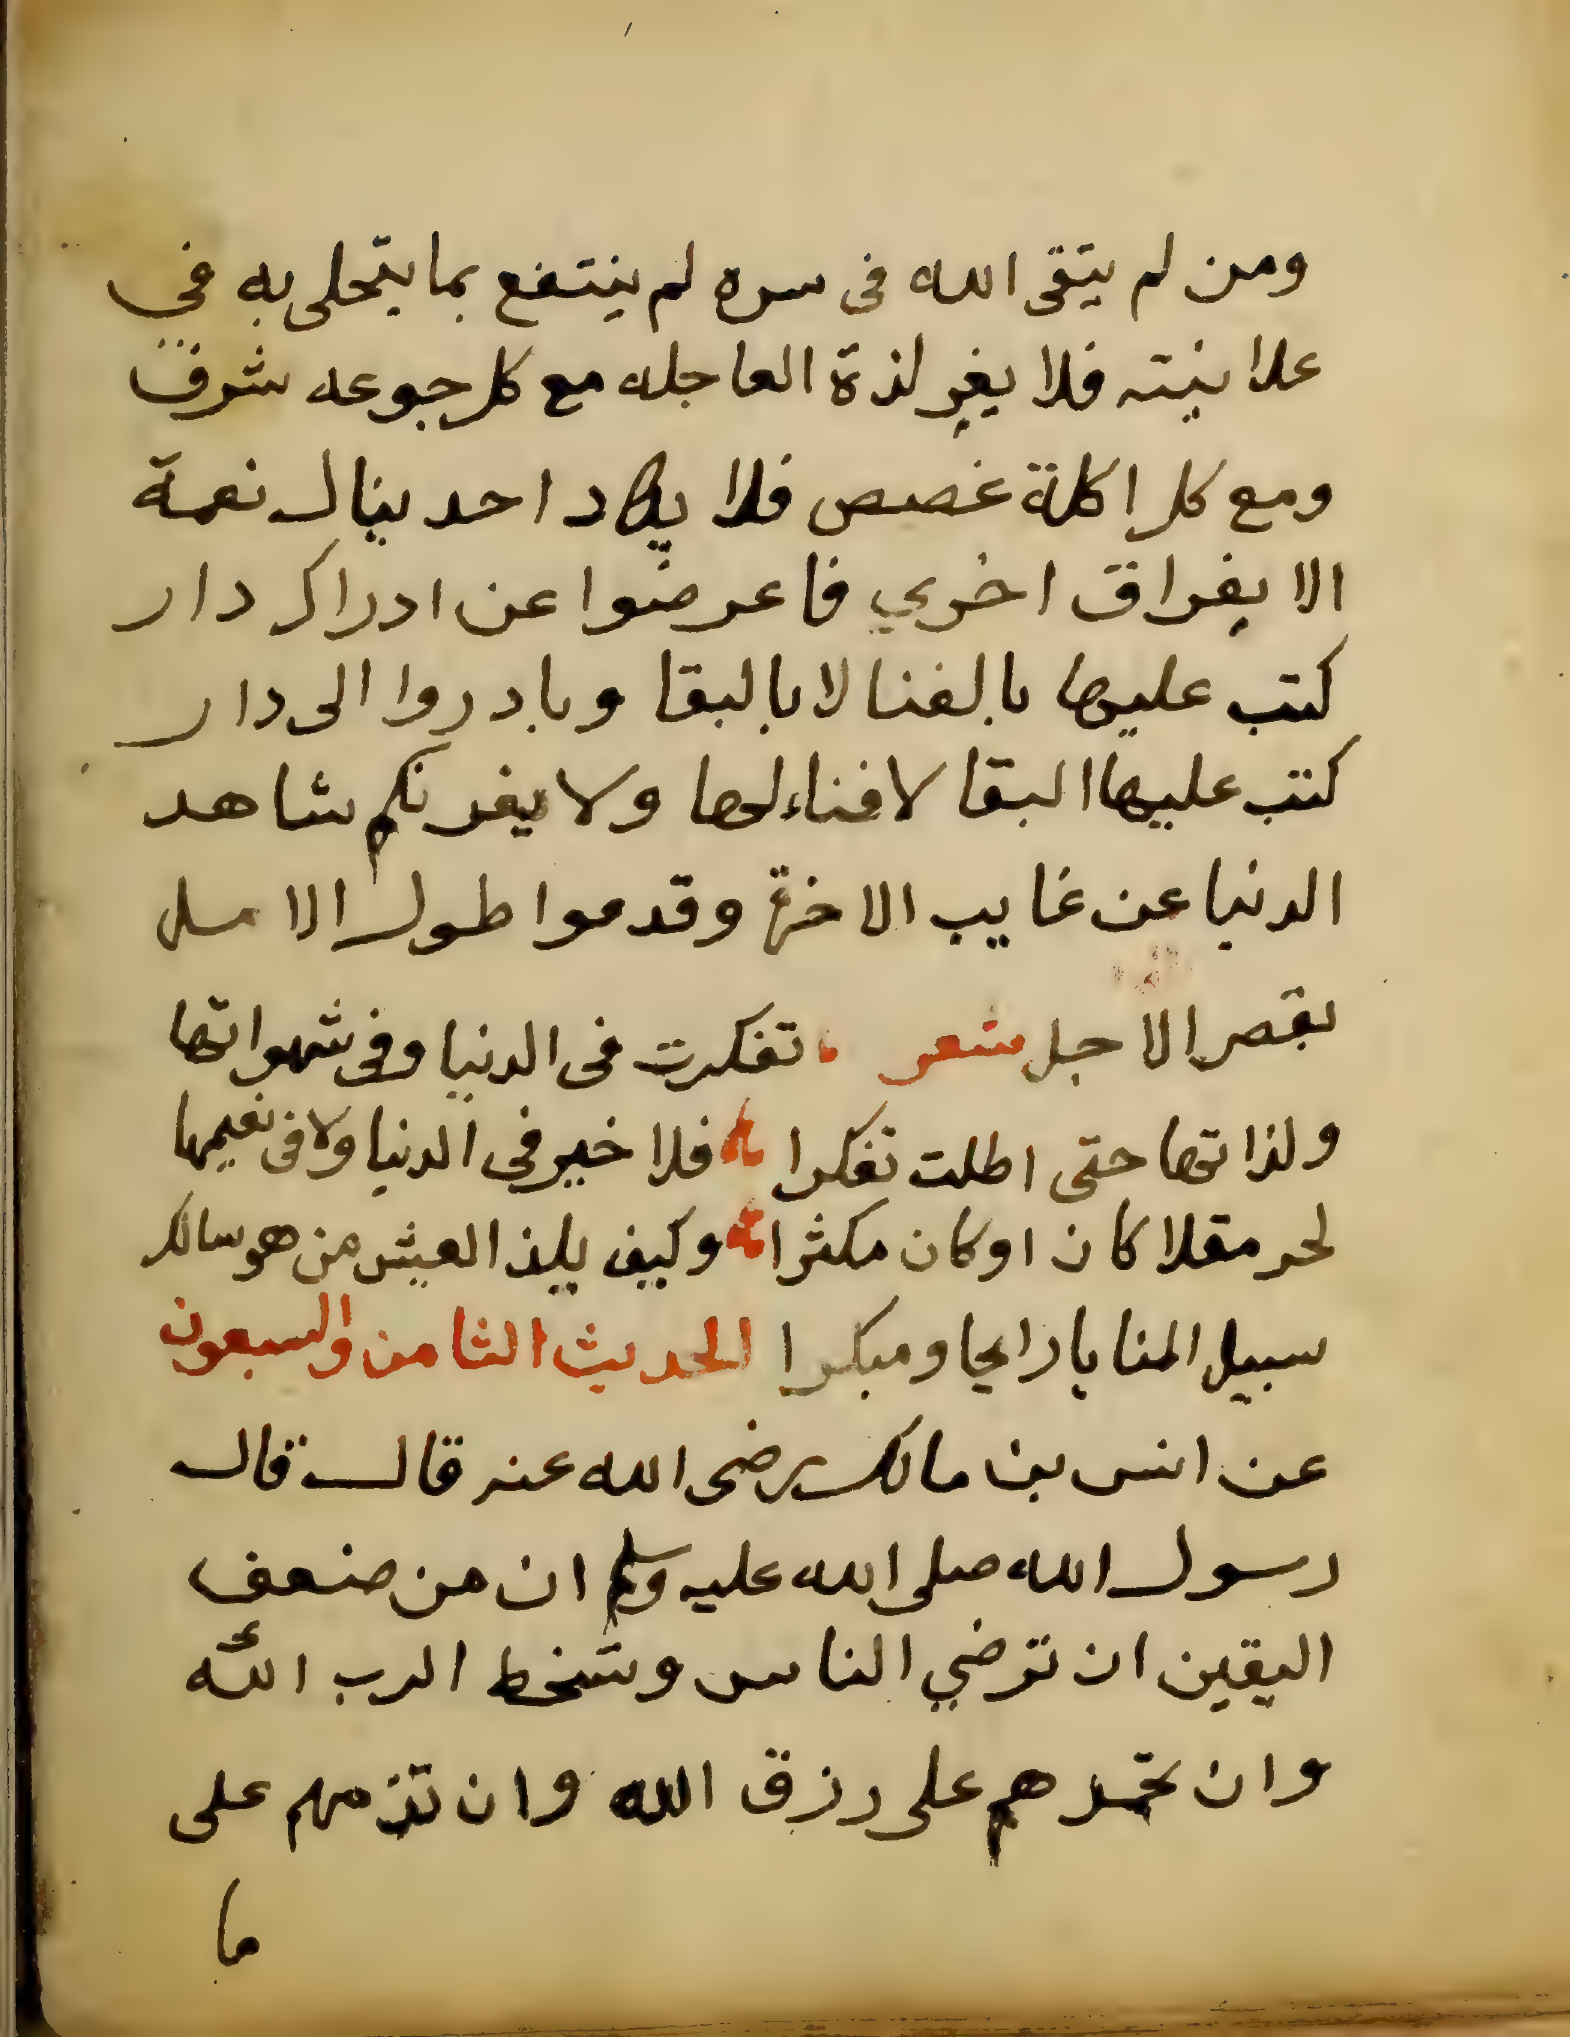 ومن لم يتقى الله فى سره لم ينتفع بما يتحلى به في
علانيته فلا يغر لذة العاجله مع كل جوعه شرق
ومع كل اكلة غصص فلا يكاد احد ينال نعمة
الا بفراق اخري فاعرضوا عن ادراك دار
كتب عليها بالفنا لا بالبقا وبادروا الى دار
كتب عليها البقا لا فناء لها ولا يغرنكم شاهد
الدنيا عن غايب الاخرة وقدموا طول الامل
بقصر الاجل شعر تفكرت فى الدنيا وفى شهواتها
ولذاتها حتى اطلت تفكرا فلا خير فى الدنيا ولا فى نعيمها
لحر مقلا كان او كان مكثرا وكيف يلذ العيش من هو سالك
سبيل المنايا رايحا ومبكرا الحديث الثامن والسبعون
عن انس بن مالك رضى الله عنه قال قال
رسول الله صلى الله عليه وسلم ان من ضعف
اليقين ان ترضي الناس وتسخط الرب الله
وان تحمدهم على رزق الله وان تذمهم على
ما